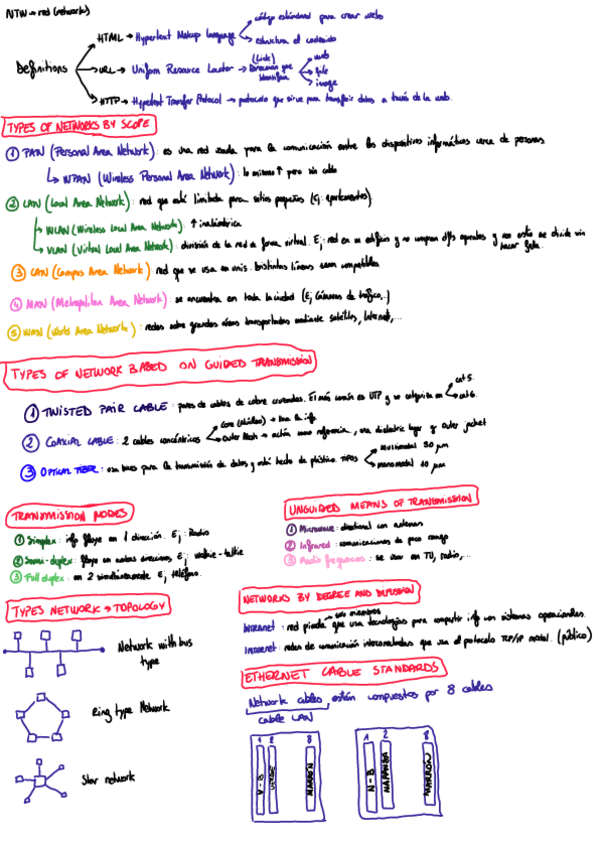 NTW → red (network)
Definitions
HTML → Hypertext Makup language
código estándard para crear webs
estructura el contenido
URL → Uniform Resource Locator → Dirección que identifica
(Link)
web
file
image
HTTP → Hypertext Transfer Protocol → protocolo que sirve para transferir datos a través de la web.
TYPES OF NETWORKS BY SCOPE
① PAN (Personal Area Network): es una red usada para la comunicación entre los dispositivos informáticos cerca de personas
↳ WPAN (Wireless Personal Area Network): lo mismo ↑ pero sin cable
② LAN (Local Area Network): red que está limitada para sitios pequeños (Ej: apartamentos)
↳ WLAN (Wireless Local Area Network): ↑ inalámbrica
↳ VLAN (Virtual Local Area Network): división de la red de forma virtual. Ej: red en un edificio y no compran dfs aparatos y esta se divide sin hacer falta.
③ CAN (Campus Area Network) red que se usa en unis. Distintas líneas sean compatibles
④ MAN (Metropolitan Area Network): se encuentra en toda la ciudad (Ej Cámaras de tráfico,..)
⑤ WAN (World Area Network): redes sobre grandes áreas transportadas mediante satélites, Internet,...
TYPES OF NETWORK BABED ON GUIDED TRANSMISSION
① TWISTED PAIR CABLE: pares de cables de cobre El más común es UTP y se categoriza en
cat 5.
cat 6.
② COAXIAL CABLE: 2 cables concéntricos
Core (Núcleo) → lleva la info
Outer Mesh → actúa como referencia, una dielectric layer y outer jacket
③ OPTICAL FIBER: usa luces para la transmisión de datos y está hecho de plástico. TIPOS
Multimodal 50 µm
monomodal 10 µm
TRANSMISSION MODES
① Simplex: info fluye en 1 dirección. Ej: Radio
② Semi-duplex: fluye en ambas direcciones, Ej: walkie-talkie
③ Full duplex: en 2 simultáneamente Ej teléfono.
UNGUIDED MEANS OF TRANSMISSION
① Microwave: directional con antenas
② Infrared: comunicaciones de poco rango
③ Radio frequencies: se usan en TV, radio,...
TYPES NETWORK → TOPOLOGY
Network with bus
type
Ring type Network
Star network
NETWORKS BY DEGREE AND DIFUSSION
INTRANET: red privada que usa tecnologías para compartir info con sistemas operacionales.
solo miembros
INTERNET: redes de comunicación interconectadas que usa el protocolo TCP/IP model. (público)
ETHERNET CABLE STANDARDS
Network cables, están compuestos por 8 cables
cable LAN
1 2 8
V-B
VERDE
MARRÓN
1 2 8
N-B
NARANJA
MARRÓN